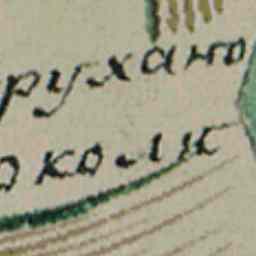 рухано
околк